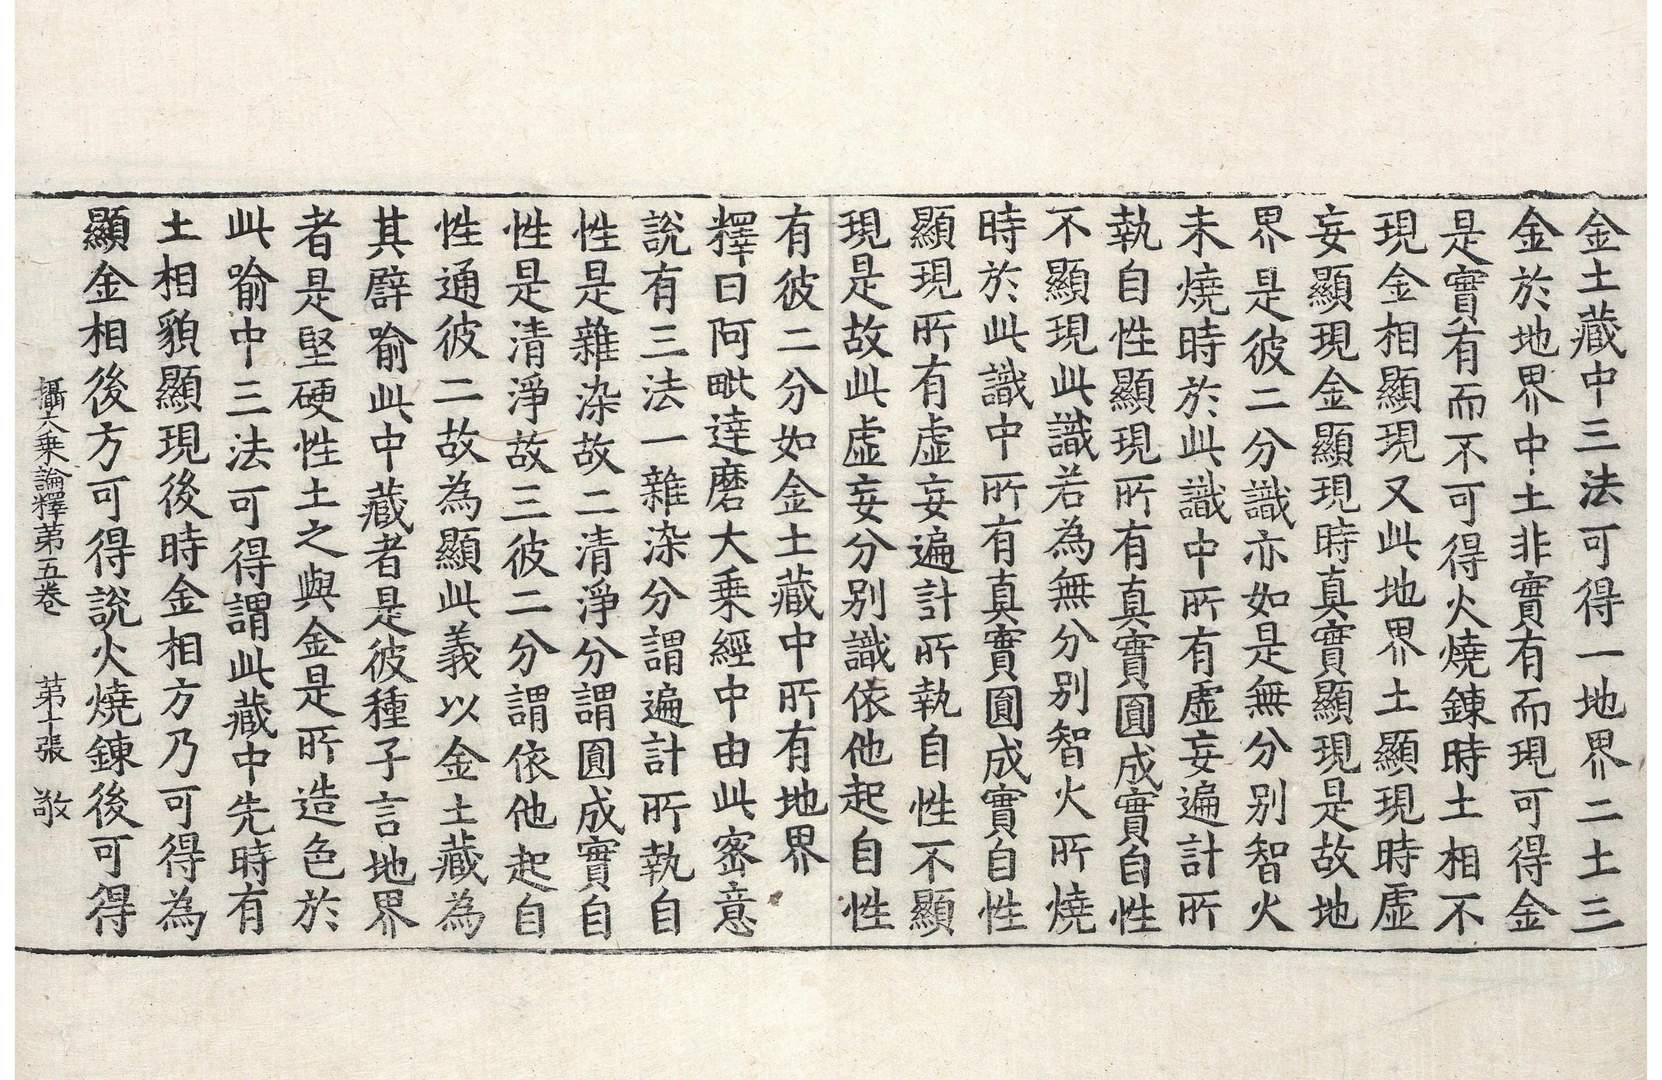 金土藏中三法可得一地界二土三
金於地界中土非實有而現可得金
是實有而不可得火燒鍊時土相不
現金相顯現又此地界土顯現時虛
妄顯現金顯現時真實顯現是故地
界是彼二分識亦如是無分別智火
未燒時於此識中所有虛妄遍計所
執自性顯現所有真實圓成實自性
不顯現此識若為無分別智火所燒
時於此識中所有真實圓成實自性
顯現所有虛妄遍計所執自性不顯
現是故此虛妄分別識依他起自性
有彼二分如金土藏中所有地界
釋曰阿毗達磨大乘經中由此密意
說有三法一雜染分謂遍計所執自
性是雜染故二清淨分謂圓成實自
性是清淨故三彼二分謂依他起自
性通彼二故為顯此義以金土藏為
其譬喻此中藏者是彼種子言地界
者是堅硬性土之與金是所造色於
此喻中三法可得謂此藏中先時有
土相貌顯現後時金相方乃可得為
顯金相後方可得說火燒鍊後可得
攝大乘論釋第五卷 第十張 敬